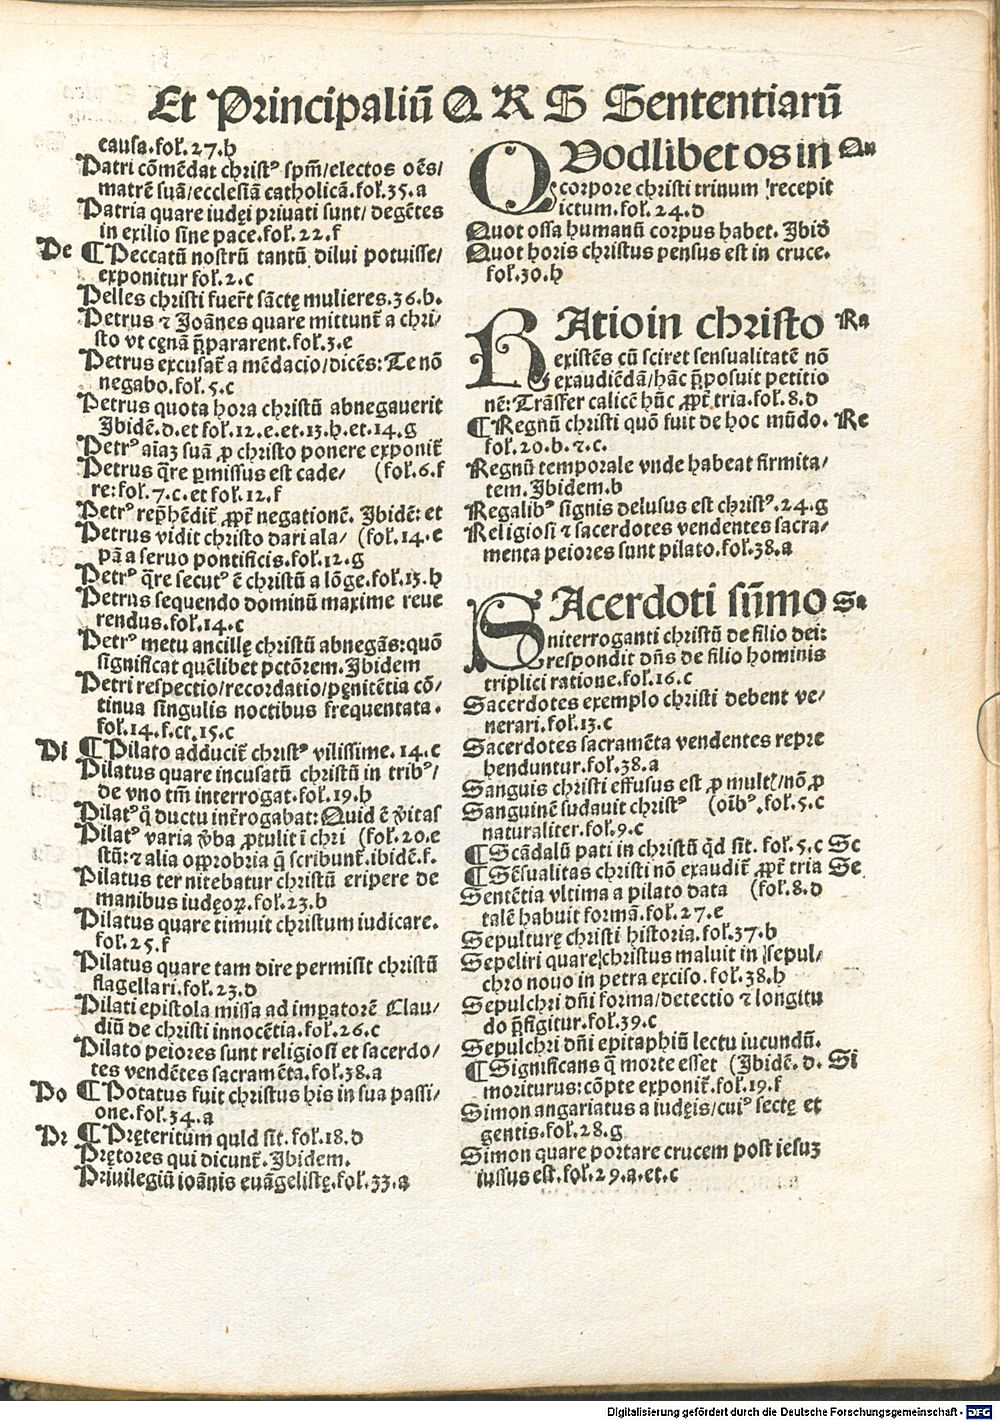 Et Principaliū Q R S Sententiarū
causa.fol. 27.h
Patri cōmēdat christꝰ spm̄/electos oēs/
matrē suā/ecclesiā catholicā.fol.35.a
Patria quare iudęi priuati sunt/ degētes
in exilio sine pace.fol.22.f
De ¶ Peccatū nostrū tantū dilui potuisse/
exponitur fol.2.c
Pelles christi fuer̄t sāctę mulieres.36.b.
Petrus ⁊ Joānes quare mittunt̄ a chri/
sto vt cęnā p̄pararent.fol.3.e
Petrus excusat̄ a mēdacio/dicēs: Te nō
negabo.fol.5.c
Petrus quota hora christū abnegauerit
Ibidē.d.et fol.12.e.et.13.h.et.14.g
Petrꝰ aīaꝫ suā ꝓ christo ponere exponit̄
Petrus q̄re ꝑmissus est cade/ (fol.6.f
re:fol.7.c.et fol.12.f
Petrꝰ rep̄hēdit̄ ꝓpt̄ negationē. Ibidē: et
Petrus vidit christo dari ala/ (fol.14.e
pā a seruo pontificis.fol.12.g
Petrꝰ q̄re secutꝰ ē christū a lōge.fol.13.h
Petrus sequendo dominū maxime reue
rendus.fol.14.c
Petrꝰ metu ancillę christū abnegās:quō
significat quēlibet pctōrem.Ibidem
Petri respectio/recordatio/pęnitētia cō/
tinua singulis noctibus frequentata.
fol.14.f.et.15.c
Di ¶ Pilato adducit̄ christꝰ vilissime.14.c
Pilatus quare incusatū christū in tribꝰ/
de vno tm̄ interrogat.fol.19.h
Pilatꝰ q̄ ductu int̄rogabat:Quid ē v̄itas
Pilatꝰ varia v̄ba ꝓtulit ī chri (fol.20.e
stū:⁊ alia opprobria q̄ scribunt̄.ibidē.f.
Pilatus ter nitebatur christū eripere de
manibus iudęoꝝ.fol.23.b
Pilatus quare timuit christum iudicare.
fol.25.f
Pilatus quare tam dire permisit christū
flagellari.fol.23.d
Pilati epistola missa ad imꝑatorē Clau/
diū de christi innocētia.fol.26.c
Pilato peiores sunt religiosi et sacerdo/
tes vendētes sacramēta.fol.38.a
Po ¶ Potatus fuit christus his in sua passi/
one.fol.34.a
Pr ¶ Pręteritum quid sit.fol.18.d
Prętores qui dicunt̄.Ibidem.
Priuilegiū ioānis euāgelistę.fol.33.a
QVodlibet os in Qu
corpore christi trinum recepit
ictum.fol.24.d
Quot ossa humanū corpus habet. Ibid̄
Quot horis christus pensus est in cruce.
fol.30.h
RAtio in christo Ra
existēs cū sciret sensualitatē nō
exaudiēdā/hāc p̄posuit petitio
nē:Trāsfer calicē hūc ꝓpt̄ tria.fol.8.d
¶ Regnū christi quō fuit de hoc mūdo. Re
fol.20.b.⁊.c.
Regnū temporale vnde habeat firmita/
tem.Ibidem.b
Regalibꝰ signis delusus est christꝰ.24.g
Religiosi ⁊ sacerdotes vendentes sacra/
menta peiores sunt pilato.fol.38.a
SAcerdoti sūmo Sa
niterroganti christū de filio dei:
respondit dn̄s de filio hominis
triplici ratione.fol.16.c
Sacerdotes exemplo christi debent ve/
nerari.fol.13.c
Sacerdotes sacramēta vendentes repre
henduntur.fol.38.a
Sanguis christi effusus est ꝓ mult[/nō ꝓ
Sanguinē sudauit christꝰ (oībꝰ.fol.5.c
naturaliter.fol.9.c
¶ Scādalū pati in christū q̄d sit. fol.5.c Sc
¶ Sēsualitas christi nō exaudit̄ ꝓpt̄ tria Se
Sentētia vltima a pilato data (fol.8.d
talē habuit formā.fol.27.e
Sepulturę christi historia.fol.37.b
Sepeliri quare christus maluit in sepul/
chro nouo in petra exciso.fol.38.h
Sepulchri dn̄i forma/detectio ⁊ longitu
do p̄figitur.fol.39.c
Sepulchri dn̄i epitaphiū lectu iucundū.
¶ Significans q̄ morte esset (Ibidē. d. Si
moriturus:cōpte exponit̄.fol.19.f
Simon angariatus a iudęis/cuiꝰ sectę et
gentis.fol.28.g
Simon quare portare crucem post iesuꝫ
iussus est.fol.29.a.et.c
Digitalisierung gefördert durch die Deutsche Forschungsgemeinschaft - DFG